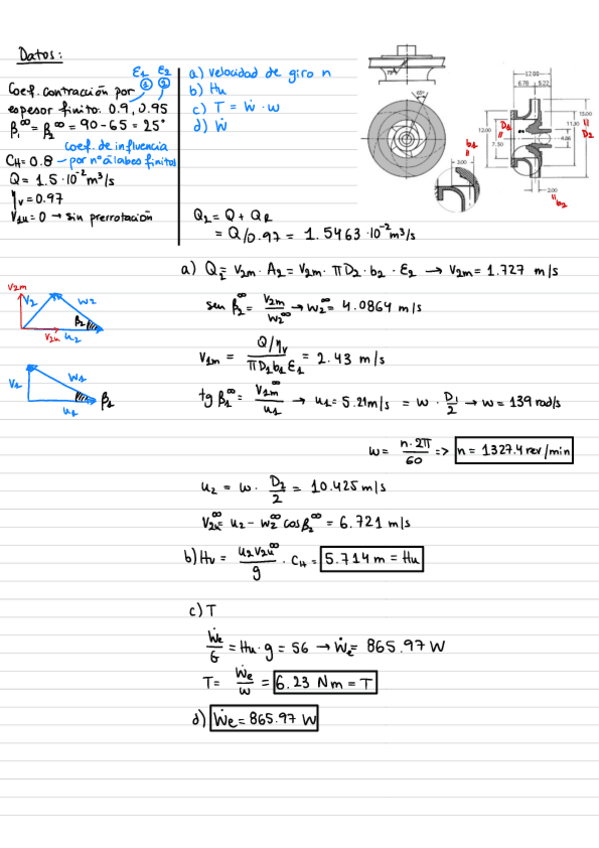 Datos:
Coef. contracción por
ε1 ε2
① ②
espesor finito: 0.9, 0.95
β1^∞ = β2^∞ = 90 - 65 = 25°
coef. de influencia
CH = 0.8 – por nº álabes finitos
Q = 1.5·10⁻² m³/s
ηv = 0.97
V1u = 0 → sin prerrotación
a) velocidad de giro n
b) Hu
c) T = Ẇ · w
d) Ẇ
65°
12.00
6.78 5.22
12.00
7.50
D1
11.30
15.00
D2
b1
3.00
2.00
b2
Q2 = Q + QR
= Q/0.97 = 1.5463·10⁻² m³/s
a) Q2 = V2m · A2 = V2m · πD2 · b2 · ε2 → V2m = 1.727 m/s
sen β2^∞ = V2m / w2^∞ → w2^∞ = 4.0864 m/s
V2m
V2
w2
β2
V2m
u2
V1m = Q/ηv / πD1b1ε1 = 2.43 m/s
V1
w1
u1
β1
tg β1^∞ = V1m^∞ / u1 → u1 = 5.21 m/s = w · D1/2 → w = 139 rad/s
w = n·2π / 60 => n = 1327.4 rev/min
u2 = w · D2/2 = 10.425 m/s
V2u^∞ = u2 - w2^∞ cos β2^∞ = 6.721 m/s
b) Hu = u2V2u^∞ / g · CH = 5.714 m = Hu
c) T
Ẇe / G = Hu · g = 56 → Ẇe = 865.97 W
T = Ẇe / w = 6.23 Nm = T
d) Ẇe = 865.97 W